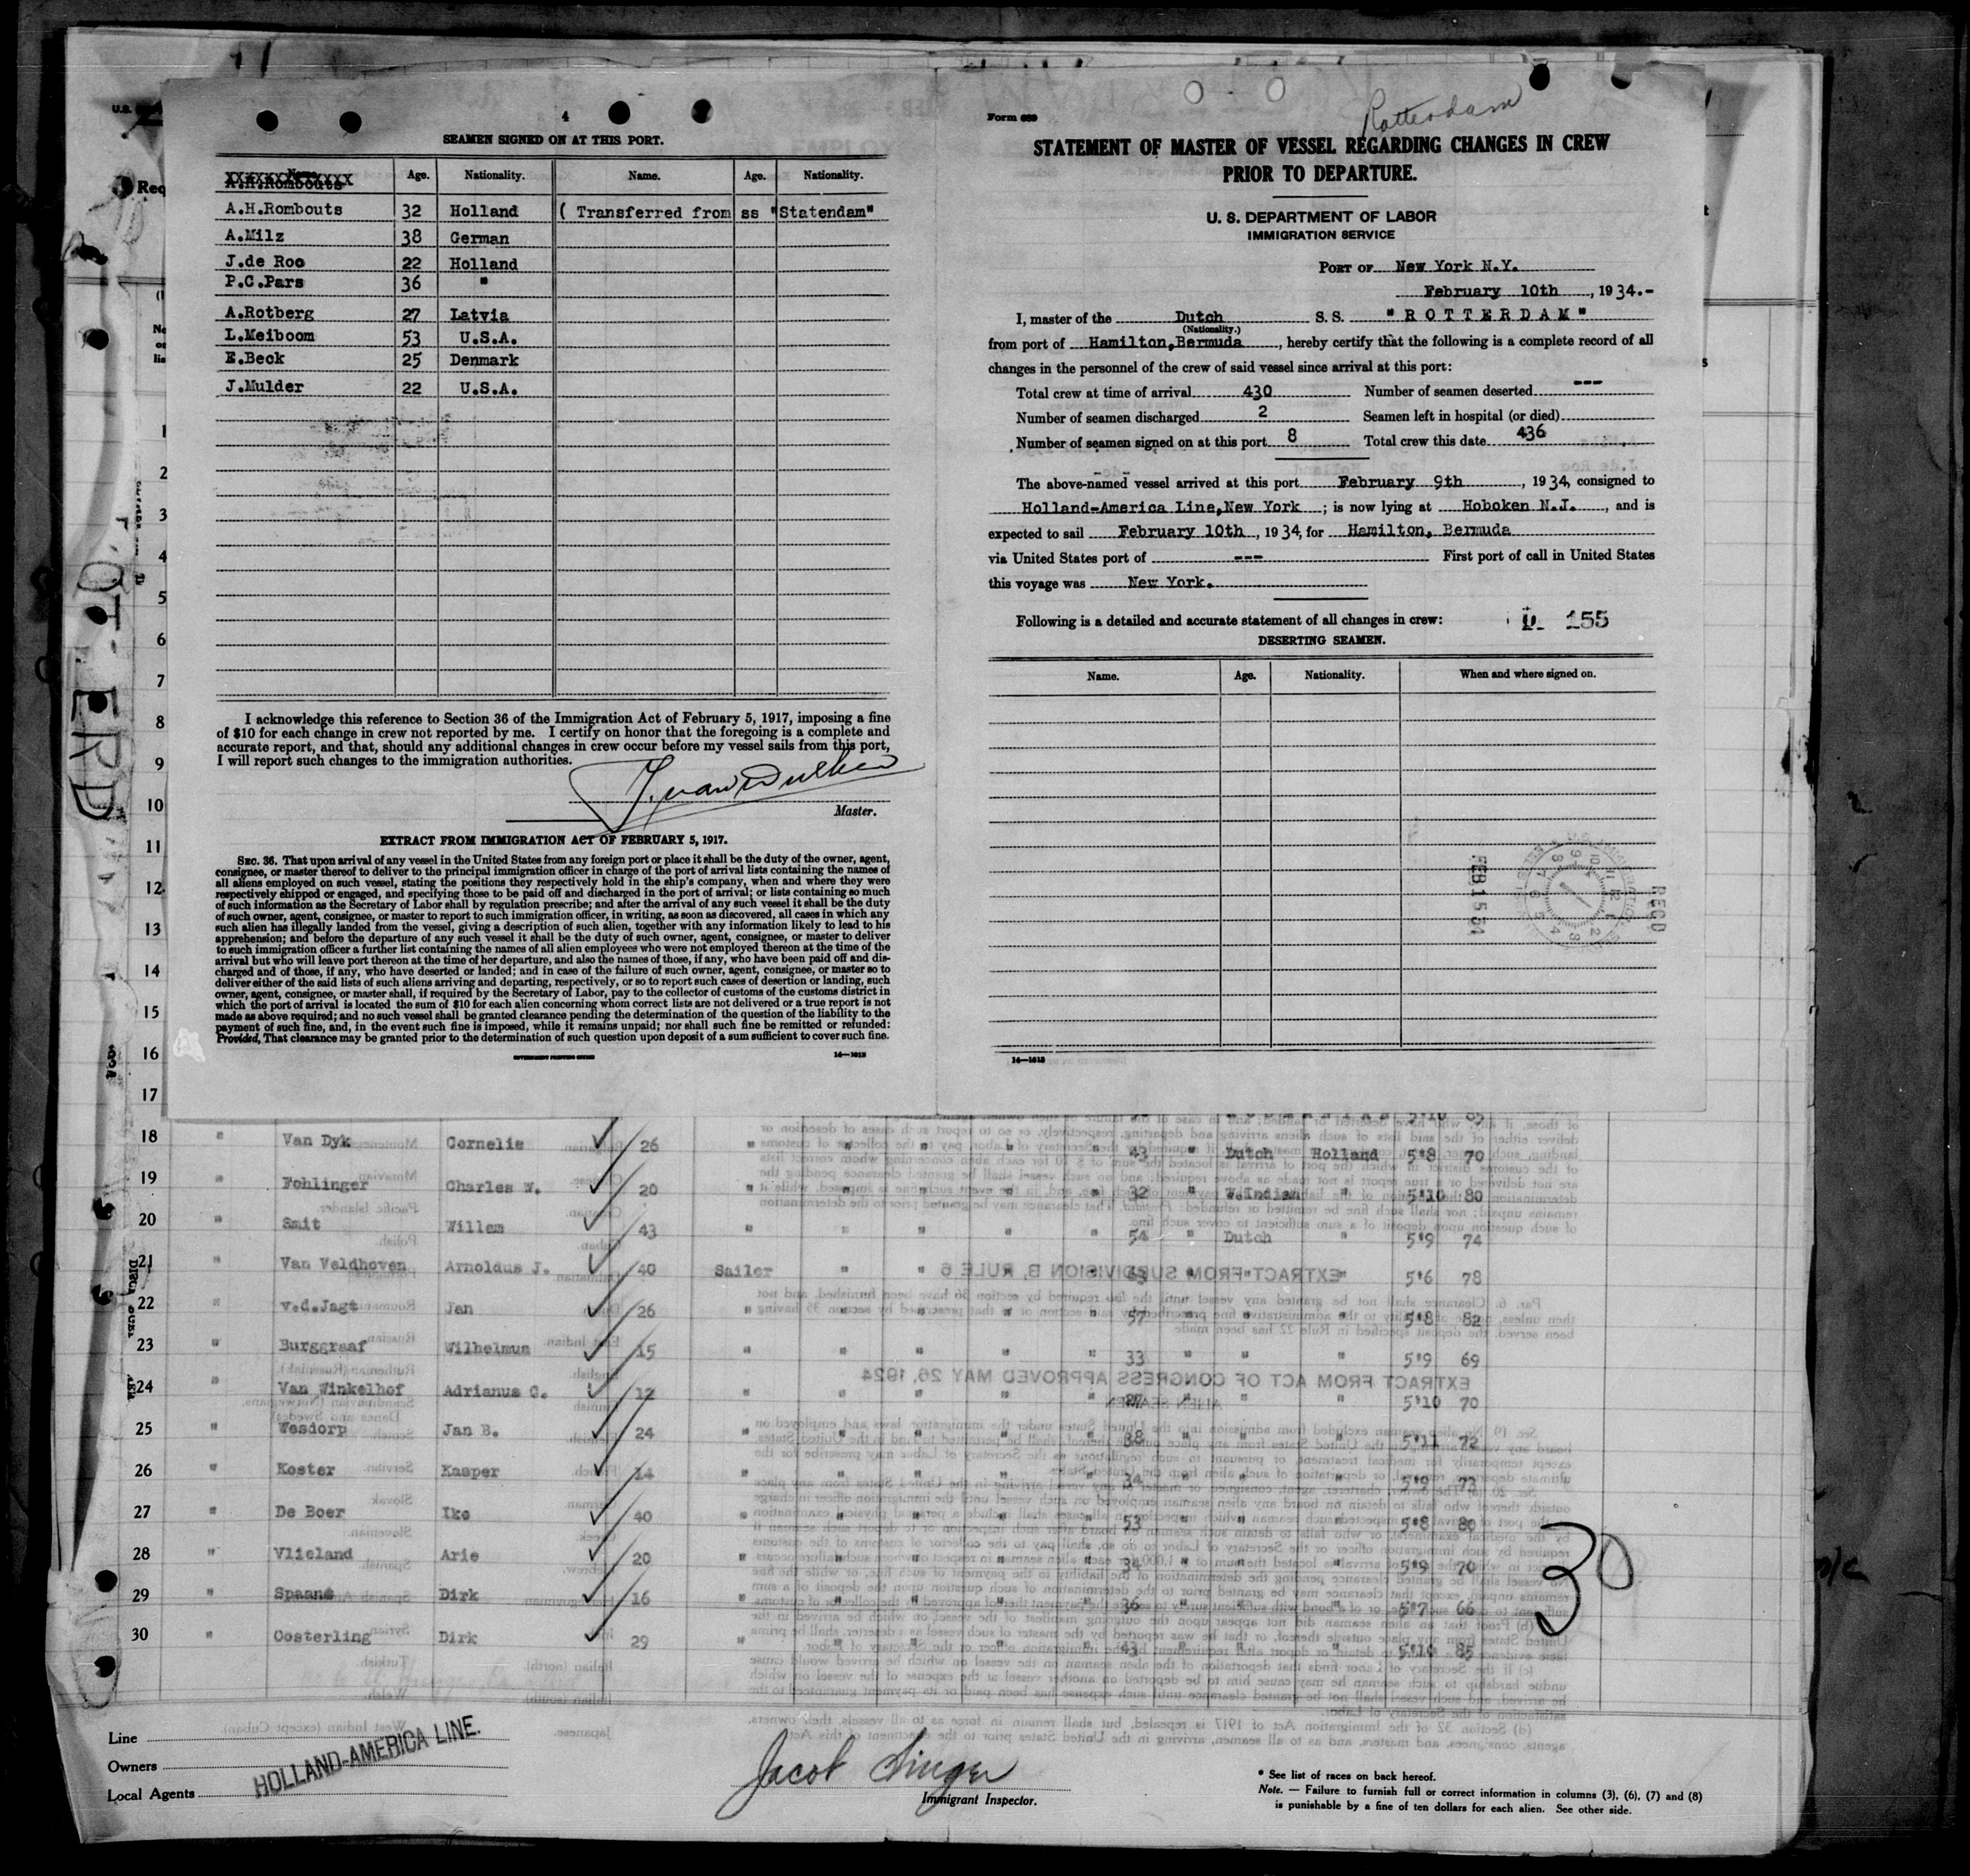 4
SEAMEN SIGNED ON AT THIS PORT.
Name. Age. Nationality. Name. Age. Nationality.
A.H.Rombouts
A.H.Rombouts 32 Holland ( Transferred from ss "Statendam"
A.Milz 38 German
J.de Roo 22 Holland
P.C.Pars 36 "
A.Rotberg 27 Latvia
L.Meiboom 53 U.S.A.
E.Beck 25 Denmark
J.Mulder 22 U.S.A.
I acknowledge this reference to Section 36 of the Immigration Act of February 5, 1917, imposing a fine
of $10 for each change in crew not reported by me. I certify on honor that the foregoing is a complete and
accurate report, and that, should any additional changes in crew occur before my vessel sails from this port,
I will report such changes to the immigration authorities.
Master.
EXTRACT FROM IMMIGRATION ACT OF FEBRUARY 5, 1917.
SEC. 36. That upon arrival of any vessel in the United States from any foreign port or place it shall be the duty of the owner, agent,
consignee, or master thereof to deliver to the principal immigration officer in charge of the port of arrival lists containing the names of
all aliens employed on such vessel, stating the positions they respectively hold in the ship's company, when and where they were
respectively shipped or engaged, and specifying those to be paid off and discharged in the port of arrival; or lists containing so much
of such information as the Secretary of Labor shall by regulation prescribe; and after the arrival of any such vessel it shall be the duty
of such owner, agent, consignee, or master to report to such immigration officer, in writing, as soon as discovered, all cases in which any
such alien has illegally landed from the vessel, giving a description of such alien, together with any information likely to lead to his
apprehension; and before the departure of any such vessel it shall be the duty of such owner, agent, consignee, or master to deliver
to such immigration officer a further list containing the names of all alien employees who were not employed thereon at the time of the
arrival but who will leave port thereon at the time of her departure, and also the names of those, if any, who have been paid off and dis-
charged and of those, if any, who have deserted or landed; and in case of the failure of such owner, agent, consignee, or master so to
deliver either of the said lists of such aliens arriving and departing, respectively, or so to report such cases of desertion or landing, such
owner, agent, consignee, or master shall, if required by the Secretary of Labor, pay to the collector of customs of the customs district in
which the port of arrival is located the sum of $10 for each alien concerning whom correct lists are not delivered or a true report is not
made as above required; and no such vessel shall be granted clearance pending the determination of the question of the liability to the
payment of such fine, and, in the event such fine is imposed, while it remains unpaid; nor shall such fine be remitted or refunded:
Provided, That clearance may be granted prior to the determination of such question upon deposit of a sum sufficient to cover such fine.
GOVERNMENT PRINTING OFFICE 14—1618
Rotterdam
Form 689
STATEMENT OF MASTER OF VESSEL REGARDING CHANGES IN CREW
PRIOR TO DEPARTURE.
U. S. DEPARTMENT OF LABOR
IMMIGRATION SERVICE
PORT OF New York N.Y.
February 10th, 1934.-
I, master of the Dutch S.S. "ROTTERDAM"
(Nationality.)
from port of Hamilton,Bermuda, hereby certify that the following is a complete record of all
changes in the personnel of the crew of said vessel since arrival at this port:
Total crew at time of arrival 430 Number of seamen deserted ---
Number of seamen discharged 2 Seamen left in hospital (or died)
Number of seamen signed on at this port 8 Total crew this date 436
The above-named vessel arrived at this port February 9th, 1934, consigned to
Holland-America Line,New York; is now lying at Hoboken N.J., and is
expected to sail February 10th, 1934, for Hamilton, Bermuda
via United States port of --- First port of call in United States
this voyage was New York.
Following is a detailed and accurate statement of all changes in crew: D 155
DESERTING SEAMEN.
Name. Age. Nationality. When and where signed on.
REC'D
FEB 15 34
14—1618
1
2
3
4
5
6
7
8
9
10
11
12
13
14
15
16
17
18 " Van Dyk Cornelis 26 " " " " " 43 " Dutch Holland 5'8 70
19 " Fohlinger Charles W. 20 " " " " " 32 " W.Indian " 5'10 80
20 " Smit Willem 43 " " " " " 54 " Dutch " 5'9 74
21 " Van Veldhoven Arnoldus J. 40 Sailor " " " " " " " 5'6 78
22 " v.d.Jagt Jan 26 " " " " " 57 " " " 5'8 82
23 " Burggraaf Wilhelmus 15 " " " " " 33 " " " 5'9 69
24 " Van Winkelhof Adrianus C. 12 " " " " " " " " 5'10 70
25 " Wesdorp Jan B. 24 " " " " " 38 " " " 5'11 72
26 " Koster Kasper 14 " " " " " 34 " " " 5'9 73
27 " De Boer Ike 40 " " " " " 53 " " " 5'8 80
28 " Vlieland Arie 20 " " " " " 34 " " " 5'9 70
29 " Spaans Dirk 16 " " " " " 36 " " " 5'7 66
30 " Oosterling Dirk 29 " " " " " 43 " " " 5'10 85
30
Line
Owners
Local Agents
HOLLAND-AMERICA LINE.
Jacob Singer
Immigrant Inspector.
* See list of races on back hereof.
Note. — Failure to furnish full or correct information in columns (3), (6), (7) and (8)
is punishable by a fine of ten dollars for each alien. See other side.